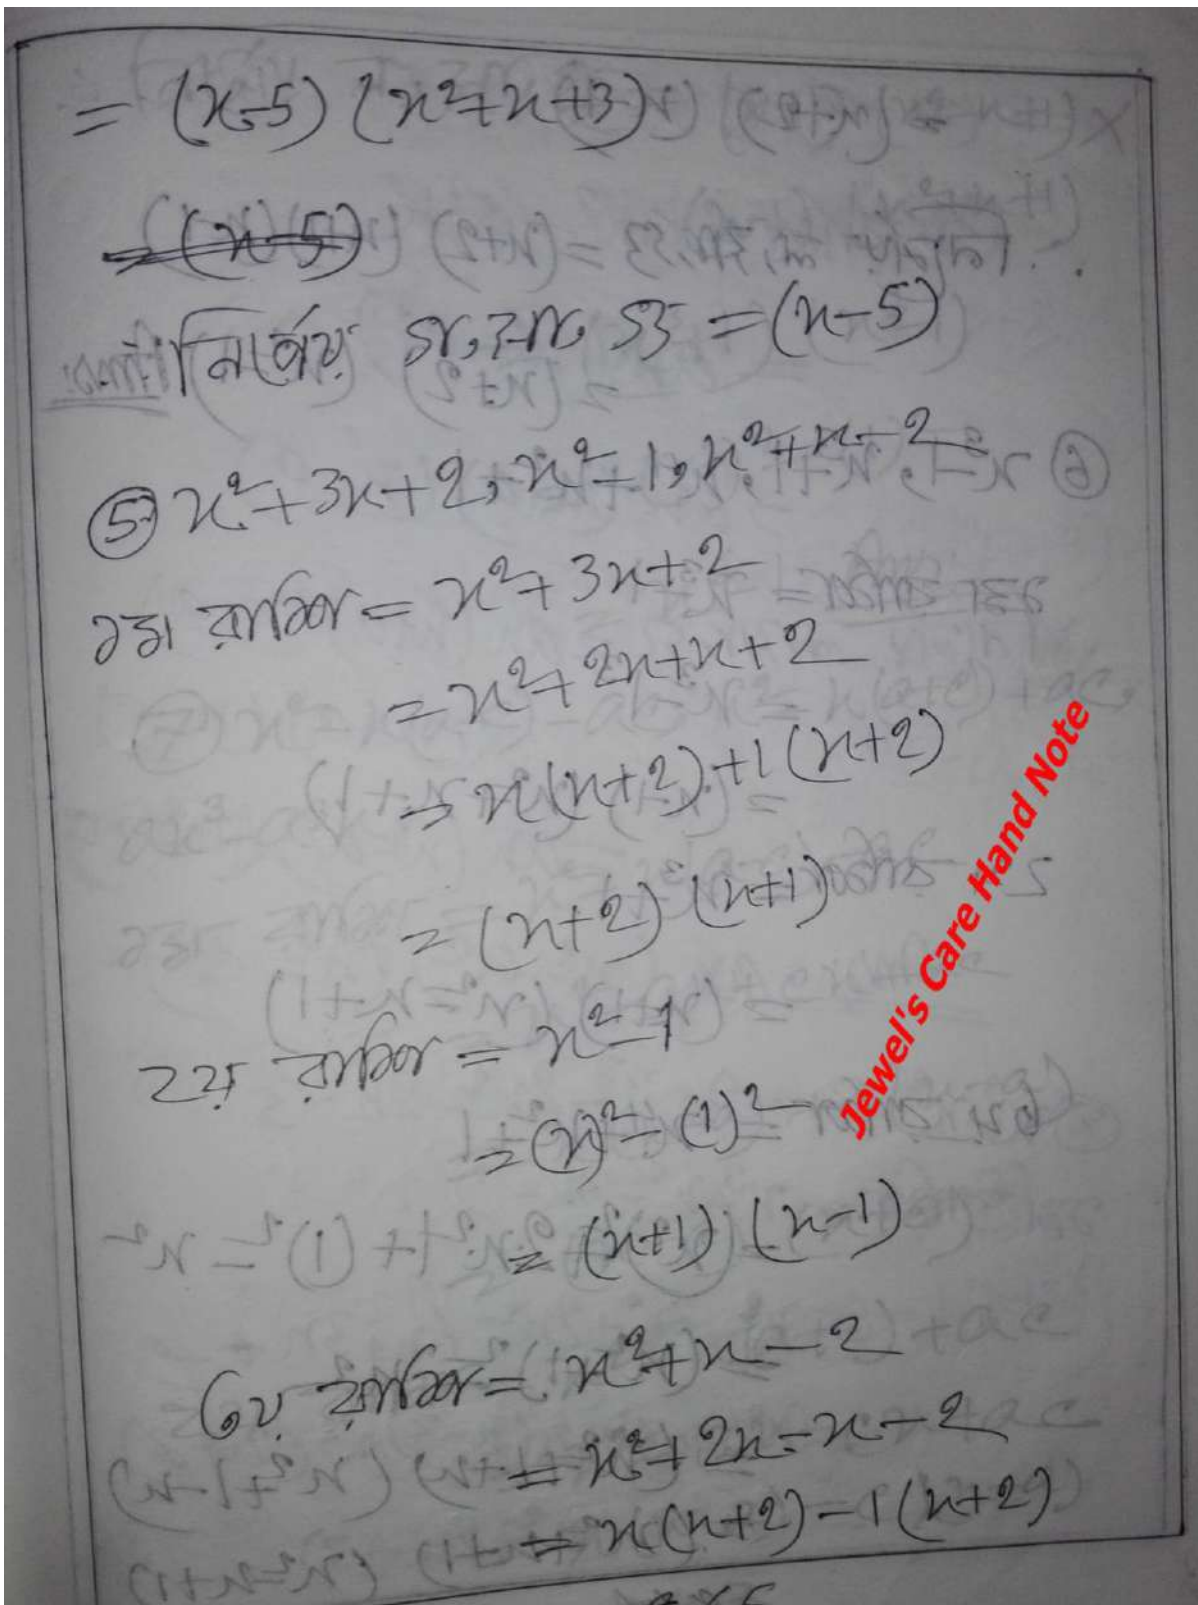 = (x-5) (x²+x+3)
= (x-5)
∴ নির্ণেয় গ,সা,গু = (x-5)
⑤ x²+3x+2, x²-1, x²+x-2
১ম রাশি = x²+3x+2
= x²+2x+x+2
= x(x+2)+1(x+2)
= (x+2) (x+1)
২য় রাশি = x²-1
= (x)²-(1)²
= (x+1) (x-1)
৩য় রাশি = x²+x-2
= x²+2x-x-2
= x(x+2)-1(x+2)
Jewel's Care Hand Note